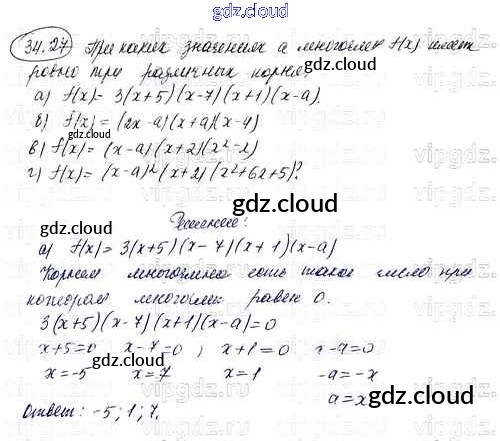 gdz.cloud
34.27 При каких значениях а многочлен f(x) имеет
ровно три различных корня:
а) f(x) = 3(x+5)(x-7)(x+1)(x-a).
б) f(x) = (2x-a)(x+a)(x-4)
в) f(x) = (x-a)(x+2)(x²-2)
г) f(x) = (x-a)²(x+2)(x²+6x+5)?
Решение:
а) f(x) = 3(x+5)(x-7)(x+1)(x-a)
Корнем многочлена есть такое число при
котором многочлен равен 0.
3(x+5)(x-7)(x+1)(x-a)=0
x+5=0 x-7=0; x+1=0 x-a=0
x=-5 x=7 x=1 -a=-x
a=x
Ответ: -5; 1; 7.
gdz.cloud
gdz.cloud
gdz.cloud
gdz.cloud
gdz.cloud
gdz.cloud
gdz.cloud